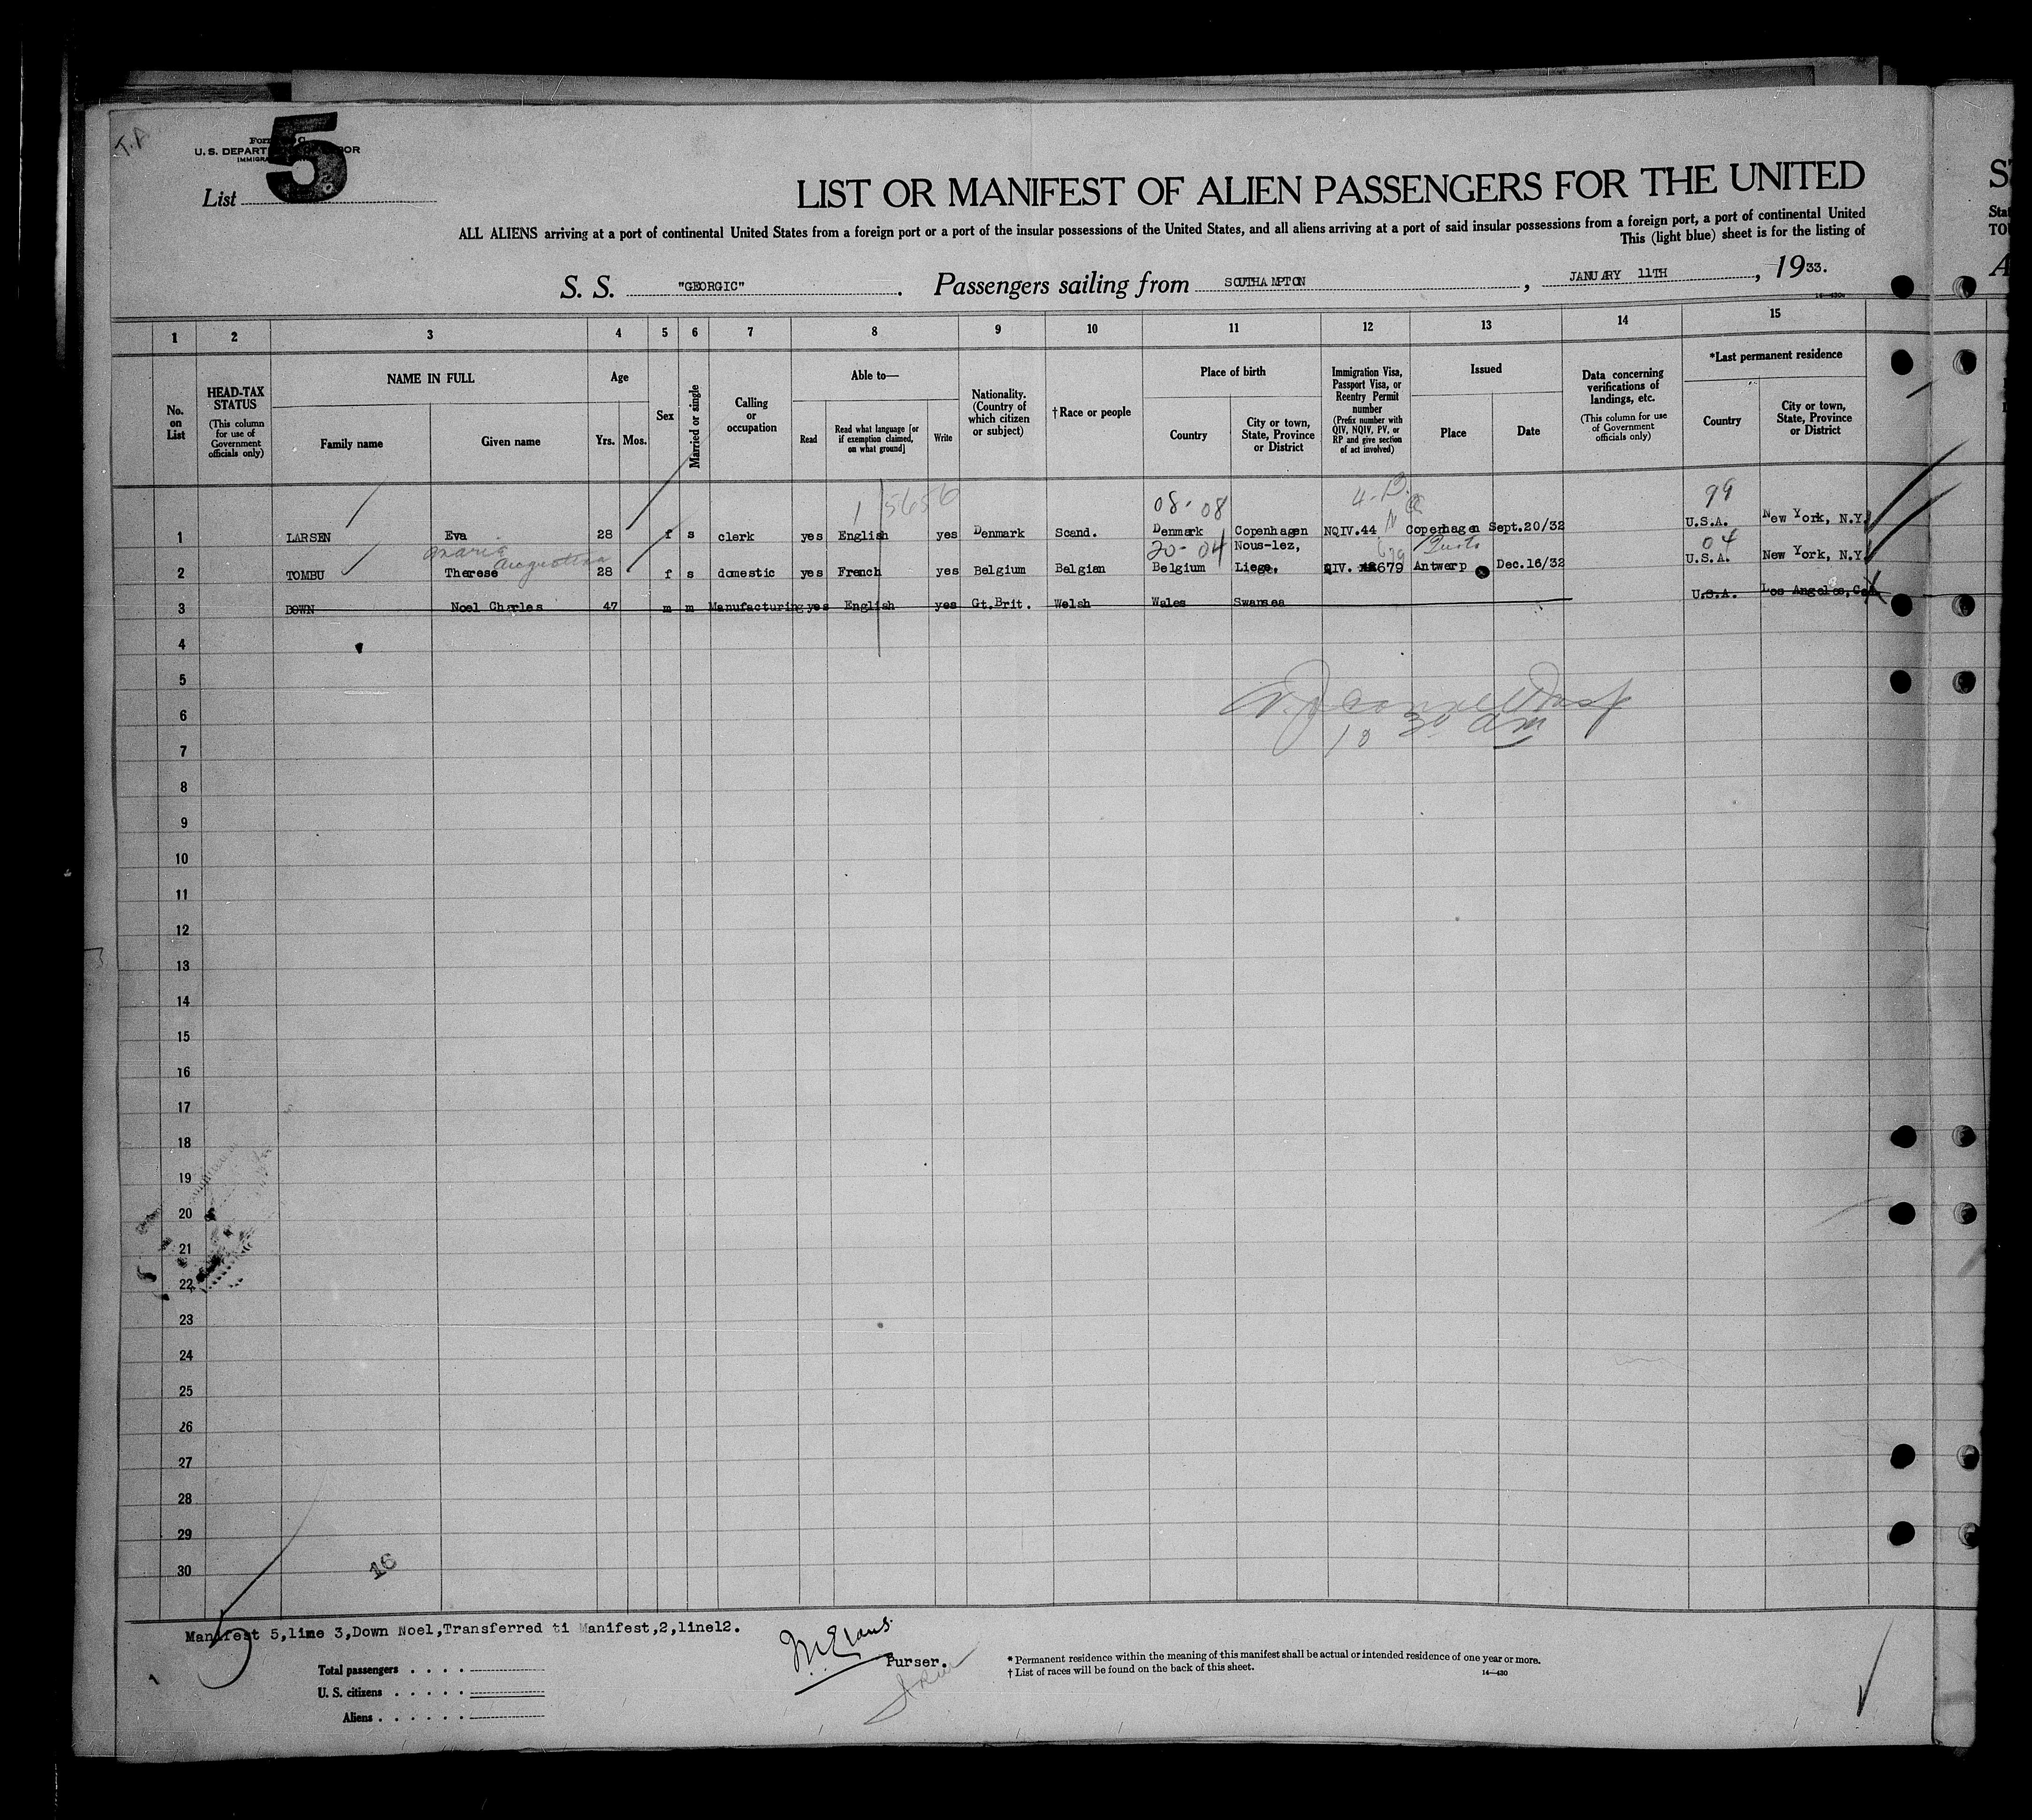 5
U. S. DEPART
List
LIST OR MANIFEST OF ALIEN PASSENGERS FOR THE UNITED
ALL ALIENS arriving at a port of continental United States from a foreign port or a port of the insular possessions of the United States, and all aliens arriving at a port of said insular possessions from a foreign port, a port of continental United
This (light blue) sheet is for the listing of
S. S. "GEORGIC". Passengers sailing from SOUTHAMPTON, JANUARY 11TH, 1933.
1 2 3 4 5 6 7 8 9 10 11 12 13 14 15
No. on List
HEAD-TAX STATUS (This column for use of Government officials only)
NAME IN FULL
Family name
Given name
Age
Yrs.
Mos.
Sex
Married or single
Calling or occupation
Able to—
Read
Read what language [or if exemption claimed, on what ground]
Write
Nationality. (Country of which citizen or subject)
†Race or people
Place of birth
Country
City or town, State, Province or District
Immigration Visa, Passport Visa, or Reentry Permit number (Prefix number with QIV, NQIV, PV, or RP and give section of act involved)
Issued
Place
Date
Data concerning verifications of landings, etc. (This column for use of Government officials only)
*Last permanent residence
Country
City or town, State, Province or District
1 5656
08-08
99
1 LARSEN Eva 28 f s clerk yes English yes Denmark Scand. Denmark Copenhagen NQIV.44 Copenhagen Sept.20/32 U.S.A. New York, N.Y.
Maria Augustina
20-04
04
2 TOMBU Therese 28 f s domestic yes French yes Belgium Belgian Belgium Nous-lez, Liege, QIV. 679 Antwerp Dec.16/32 U.S.A. New York, N.Y.
3 DOWN Noel Charles 47 m m Manufacturing yes English yes Gt.Brit. Welsh Wales Swansea U.S.A. Los Angeles, Cal.
4
5
6
10 30 am
7
8
9
10
11
12
13
14
15
16
17
18
19
20
21
22
23
24
25
26
27
28
29
30
16
Manifest 5,line 3,Down Noel,Transferred ti Manifest,2,line12.
5
M. Evans
Purser.
Total passengers . . . .
U. S. citizens . . . . .
Aliens . . . . . .
* Permanent residence within the meaning of this manifest shall be actual or intended residence of one year or more.
† List of races will be found on the back of this sheet.
14—430